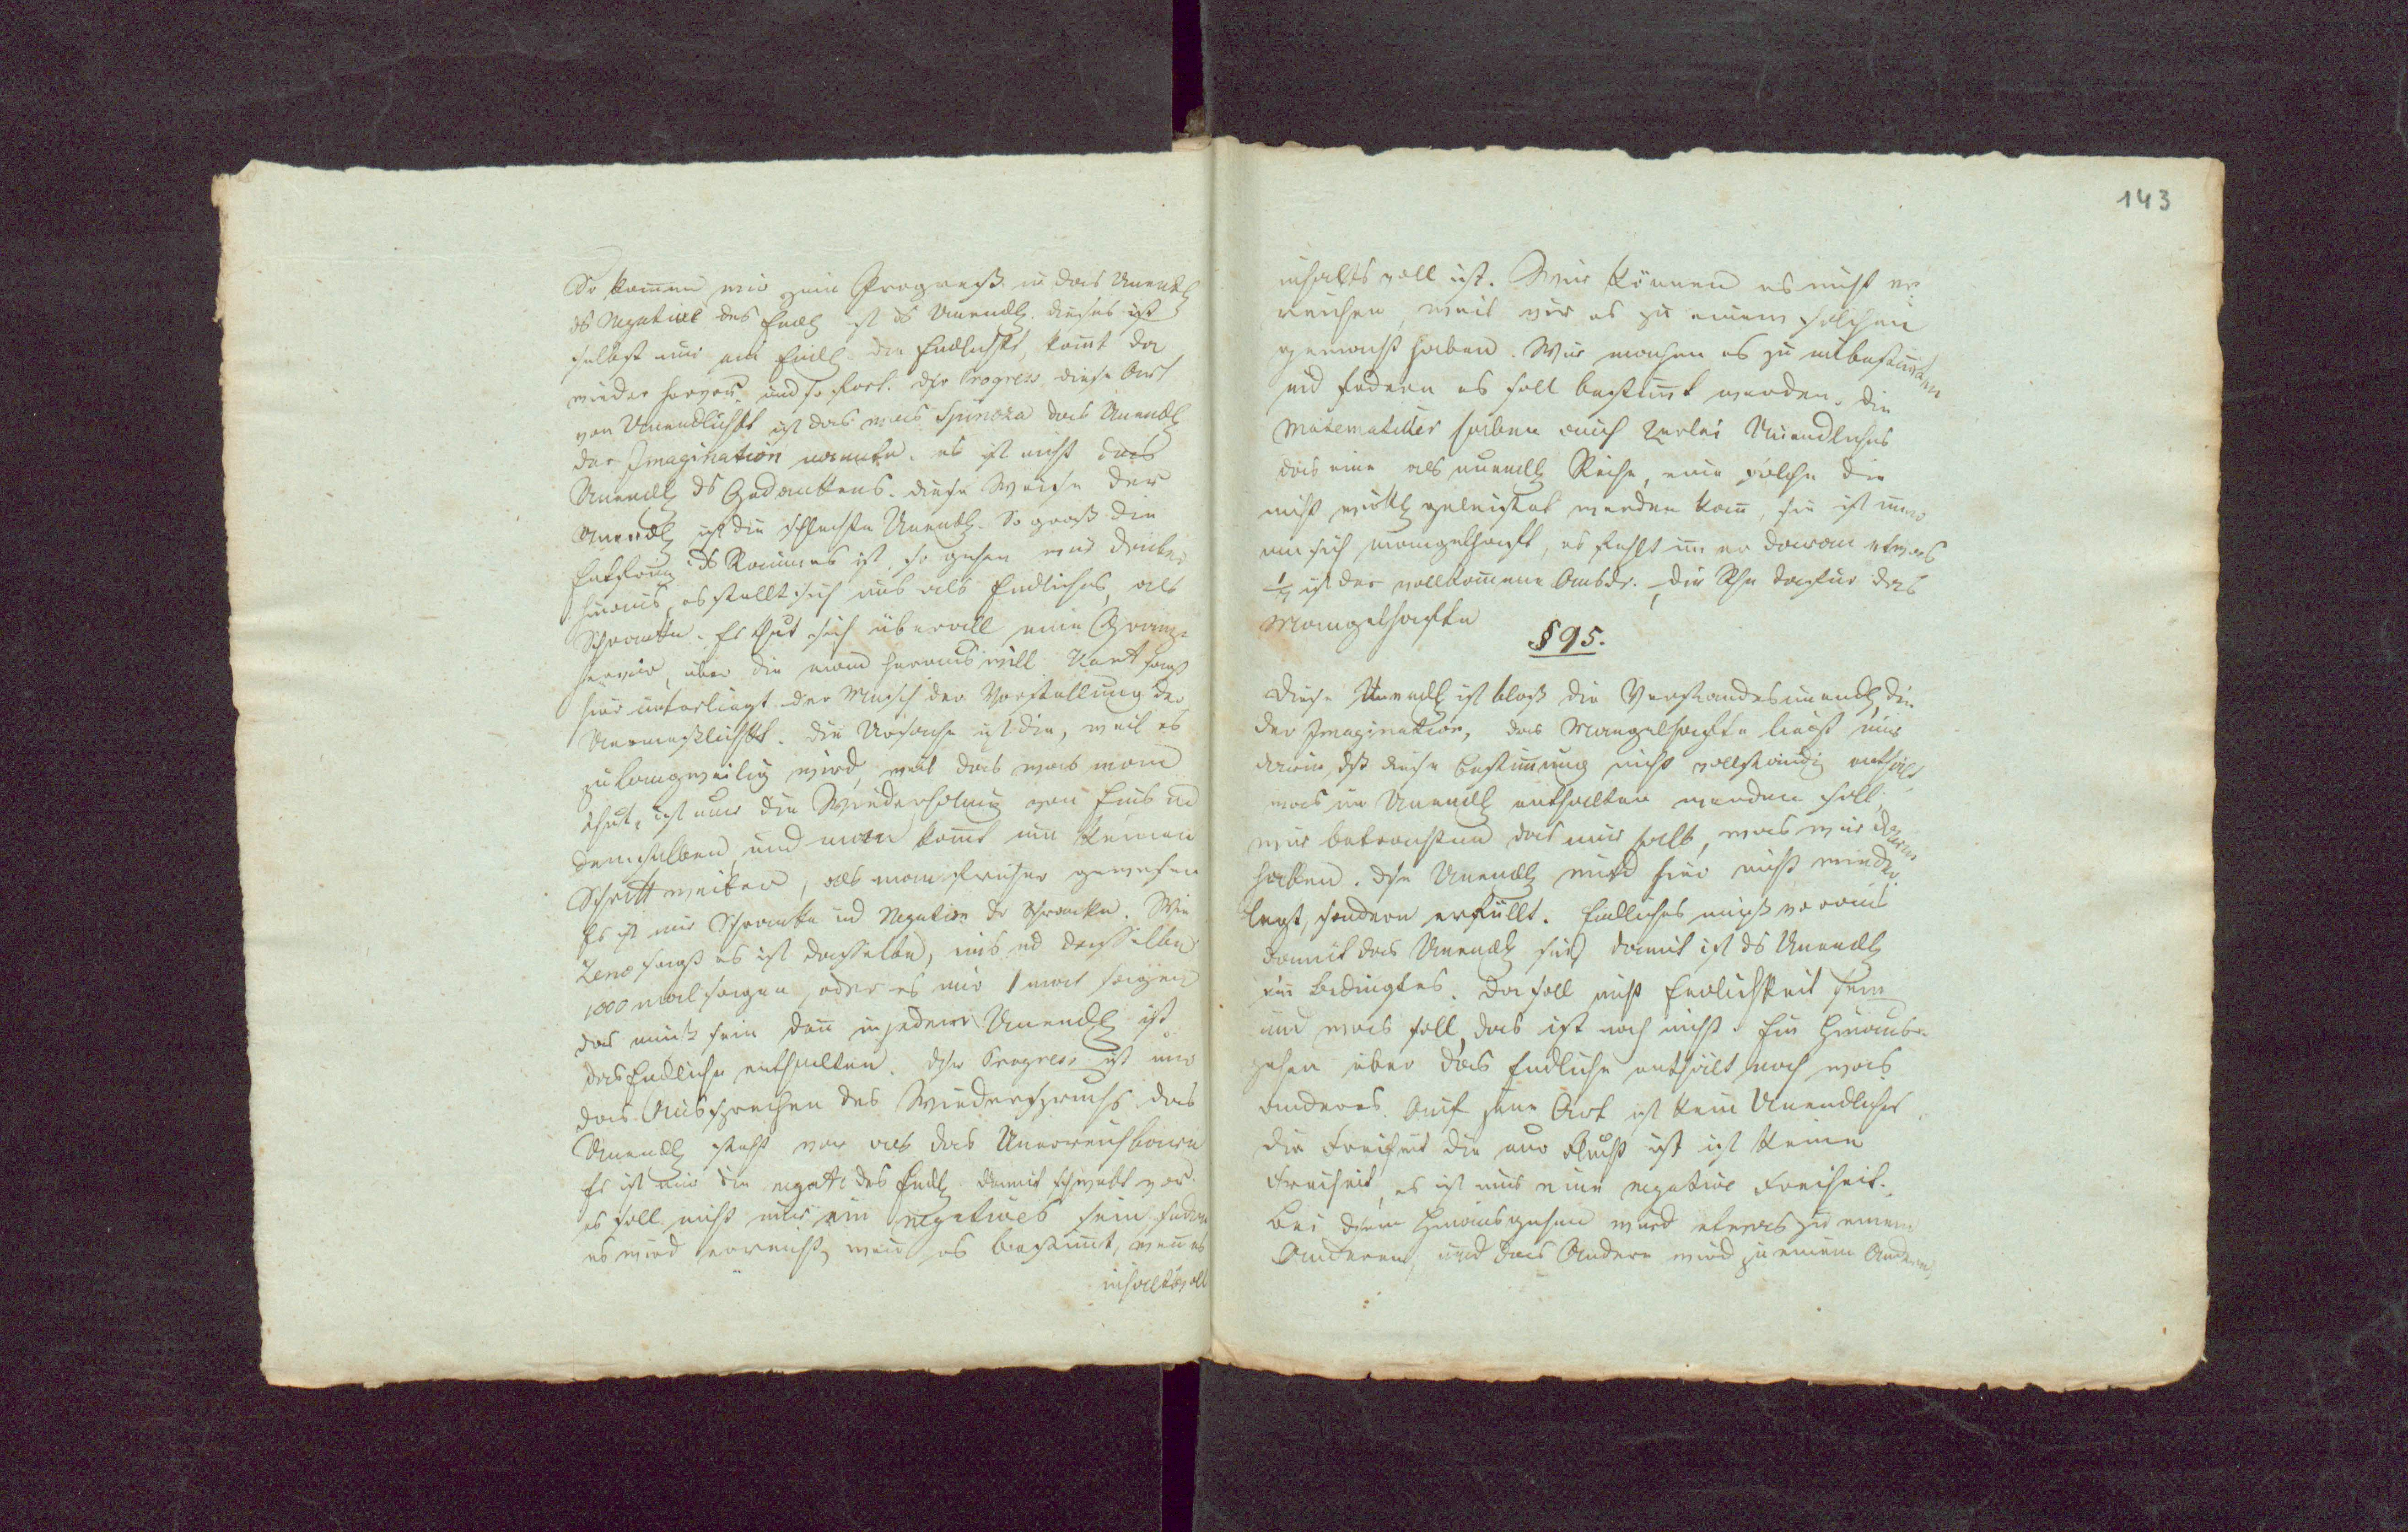 So kommen wir zum Progreß in das Unendl
ds Negative des Endl ist ds Unendl. dieses ist
selbst nur ein Endl die Endlichkt, komt da
wieder hervor, und so fort. dsr Progress diese Art
von Unendlichkt ist das was Spinoza das Unendl
der Imagination nannte. es ist nicht das
Unendl ds Gedankens. diese Weise der
Unendl ist die schlechte Unendl. So groß die
Entfrnung ds Raumes ist, so gehen wir drüber
hinaus, es stellt sich uns als Endliches, als
Schranke. Es thut sich überall eine Gränze
hervor, über die man heraus will Kant sagt
hier unterliegt der Mensch der Vorstellung der
Unermeßlichkt. die Ursache ist die, weil es
zu langweilig wird, weil das was man
thut, ist nur die Wiederholung von Eins ud
demselben, und man komt um keinen
Schritt weiter, als man früher gewesen
Es ist nur Schranke ud Negation dr Schranke. Wie
Zeno sagt es ist dasselbe, eins ud dasselbe
1000 mal sagen, oder es nur 1 mal sagen
das muß sein den in jedem Unendl ist
das Endliche enthalten. dsr Progress ist nur
das Aussprechen des Wiederspruchs das
Unendl steht vor als das Unerreichbare
Es ist nur die negat des Endl damit schwebt vor
es soll nicht nur ein negatives sein sodern
es wird erreicht, wen es bestimt, wen es
inhaltsvoll
143
inhalts voll ist. Wir können es nicht er-
reichen, weil wir es zu einem solchen
gemacht haben. Wir machen es zu unbestimtem
und fodern es soll bestimt werden. die
Matematiker haben auch 2erlei Unendliches
das eine als unendl Reihe, eine solche die
nicht wirkl geleistet werden kan, sie ist immer
an sich mangelhaft, es fehlt imer daran etwas
ist der vollkomene Ausdr. die Rhe dafür das
Mangelhafte
§ 95.
diese Unendl ist bloß die Verstandesunendl, die
der Imagination, das Mangelhafte liegt nur
darin, dß diese Bestimung nicht vollständig enthält
was im Unendl enthalten werden soll,
wir betrachten das nur halb, was wir darin
haben. dse Unendl wird hier nicht wieder-
legt, sondern erfüllt. Endliches muß voraus
damit das Unendl sei, damit ist ds Unendl
ein bedingtes. da soll nicht Endlichkeit sein
und was soll, das ist noch nicht. Ein Hinaus-
gehen über das Endliche enthält noch was
anderes. Auf jene Art ist kein Unendliches
die Freiheit die nur Flucht ist ist keine
Freiheit, es ist nur eine negative Freiheit.
Bei dsem Hinausgehen wird etwas zu einem
Anderem, und das Andere wird zu einem Anderen,